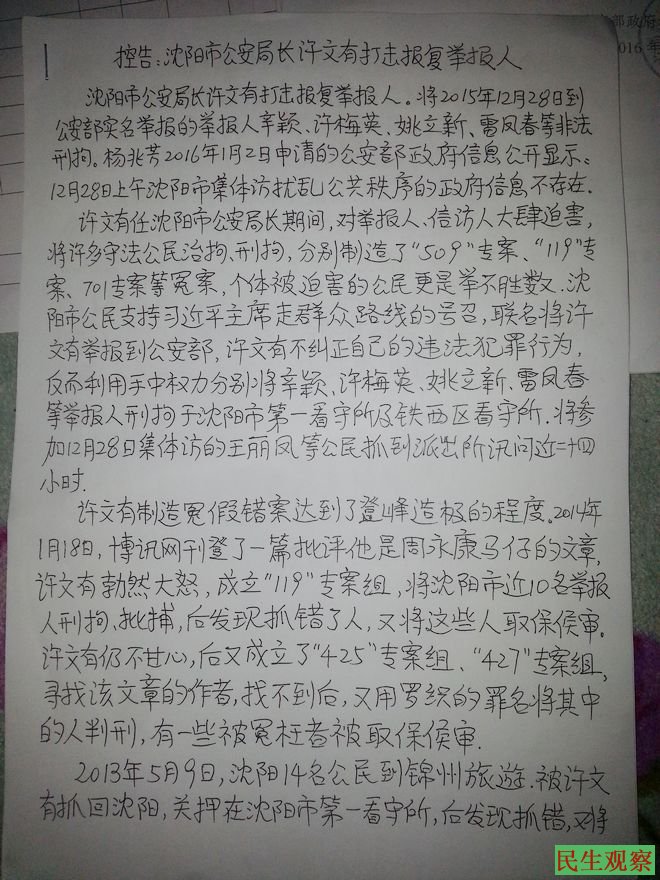 部政府
016年
控告:沈阳市公安局长许文有打击报复举报人
沈阳市公安局长许文有打击报复举报人。将2015年12月28日到
公安部实名举报的举报人辛颖、许梅英、姚立新、雷凤春等非法
刑拘。杨兆芳2016年1月2日申请的公安部政府信息公开显示:
12月28日上午沈阳市集体访扰乱公共秩序的政府信息不存在.
许文有任沈阳市公安局长期间,对举报人、信访人大肆迫害,
将许多守法公民治拘、刑拘,分别制造了"509"专案、"119"专
案、701专案等冤案,个体被迫害的公民更是举不胜数.沈
阳市公民支持习近平主席走群众路线的号召,联名将许
文有举报到公安部,许文有不纠正自己的违法犯罪行为,
反而利用手中权力分别将辛颖、许梅英、姚立新、雷凤春
等举报人刑拘于沈阳市第一看守所及铁西区看守所.将参
加12月28日集体访的王丽凤等公民抓到派出所讯问近二十四
小时.
许文有制造冤假错案达到了登峰造极的程度。2014年
1月18日,博讯网刊登了一篇批评他是周永康马仔的文章,
许文有勃然大怒,成立"119"专案组,将沈阳市近10名举报
人刑拘、批捕,后发现抓错了人,又将这些人取保侯审。
许文有仍不甘心,后又成立了"425"专案组、"427"专案组,
寻找该文章的作者,找不到后,又用罗织的罪名将其中
的人判刑,有一些被冤枉者被取保侯审.
2013年5月9日,沈阳14名公民到锦州旅遊.被许文
有抓回沈阳,关押在沈阳市第一看守所,后发现抓错,又将
民生观察